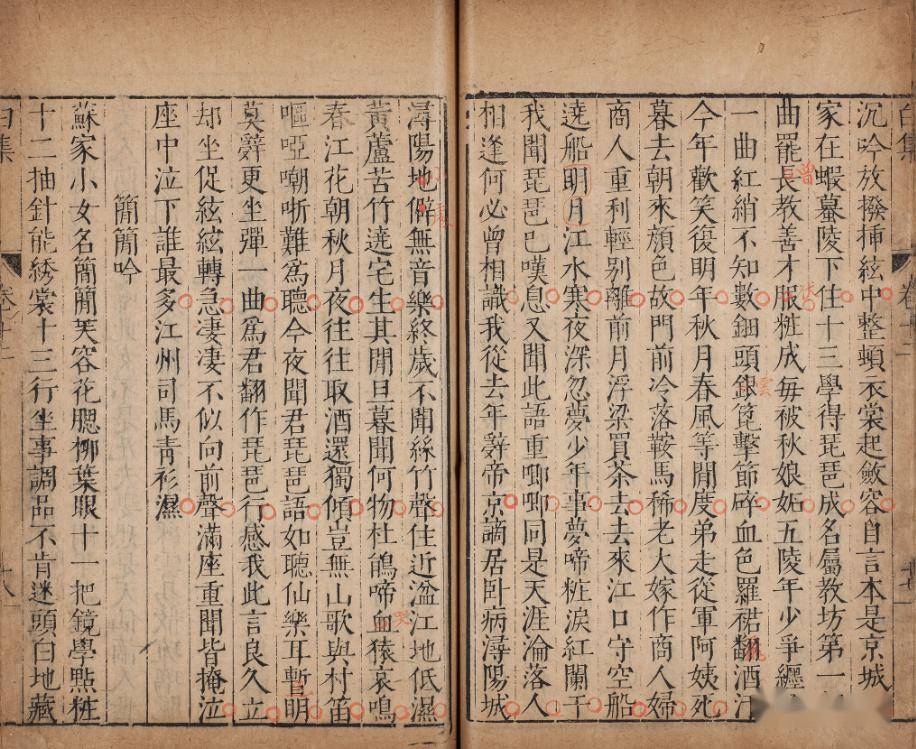 白集
沉吟放撥揷絃中整頓衣裳起斂容自言本是京城
家在蝦蟇陵下住十三學得琵琶成名屬教坊第一
曲罷長教善才服粧成每被秋娘妬五陵年少爭纏
曾
一曲紅綃不知數鈿頭銀篦擊節碎血色羅裙翻酒
雲
今年歡笑復明年秋月春風等閒度弟走從軍阿姨死
暮去朝來顏色故門前冷落鞍馬稀老大嫁作商人婦
商人重利輕別離前月浮梁買茶去去來江口守空船
遶船明月江水寒夜深忽夢少年事夢啼粧淚紅闌干
我聞琵琶已嘆息又聞此語重唧唧同是天涯淪落人
相逢何必曾相識我從去年辭帝京謫居臥病潯陽城
潯陽地僻無音樂終歲不聞絲竹聲住近湓江地低濕
黃蘆苦竹遶宅生其閒旦暮聞何物杜鵑啼血猿哀鳴
春江花朝秋月夜往往取酒還獨傾豈無山歌與村笛
嘔啞嘲哳難爲聽今夜聞君琵琶語如聽仙樂耳暫明
莫辭更坐彈一曲爲君翻作琵琶行感我此言良久立
却坐促絃絃轉急淒淒不似向前聲滿座重聞皆掩泣
座中泣下誰最多江州司馬青衫濕
簡簡吟
蘇家小女名簡簡芙容花腮柳葉眼十一把鏡學點粧
十二抽針能綉裳十三行坐事調品不肯迷頭白地藏
白集 卷十二 十八